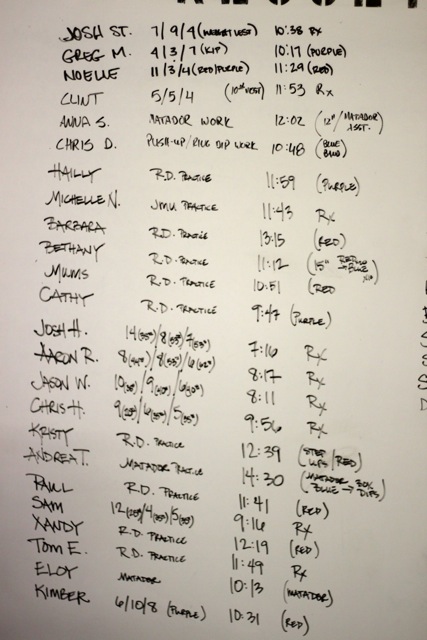 JOSH ST. 7/9/4 (WEIGHT VEST) 10:38 RX
GREG M. 4/3/7 (KIP) 10:17 (PURPLE)
NOELLE 11/3/4 (RED/PURPLE) 11:29 (RED)
CLINT 5/5/4 (10# VEST) 11:53 Rx
ANNA S. MATADOR WORK 12:02 (12"/MATADOR ASST.
CHRIS D. PUSH-UP/RING DIP WORK 10:48 (BLUE BAND)
HAILLY R.D. PRACTICE 11:59 (PURPLE)
MICHELLE N. JMU PRACTICE 11:43 Rx
BARBARA R.D. PRACTICE 13:15 (RED)
BETHANY R.D. PRACTICE 11:12 (15" → BLUE
MUMS R.D. PRACTICE 10:51 (RED
CATHY R.D. PRACTICE 9:47 (PURPLE)
JOSH H. 14(55#)/8(53#)/7(53#) 7:16 Rx
AARON R. 8 /8 /6 8:17 Rx
JASON W. 10 /9 /6 8:11 Rx
CHRIS H. 9 /6 /5 9:56 Rx
KRISTY R.D. PRACTICE 12:39 (STEP UPS/RED)
ANDREA T. MATADOR PRACTICE 14:30 (MATADOR BLUE → DIPS)
PAUL R.D. PRACTICE 11:41 (RED)
SAM 12 /4 /5 9:16 Rx
XANDY R.D. PRACTICE 12:19 (RED)
TOM E. R.D. PRACTICE 11:49 Rx
ELOY MATADOR 10:13 (MATADOR)
KIMBER 6/10/8 (PURPLE) 10:31 (RED)